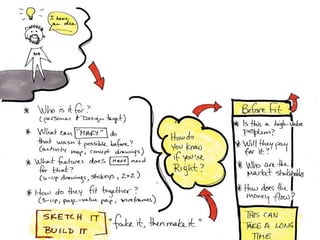 I have an idea...
* Who is it for?
(personas & Design target)
* What can "MARY" do
that wasn't possible before?
(activity map, concept drawings)
* What features does need
for that?
(6-up drawings, storeys, 2x2)
* How do they fit together?
(3-up, page-value pop, wireframes)
SKETCH IT
BUILD IT
"fake it, then make it"
How do
you know
if you're
Right?
Before Fit
* Is this a high-value
problem?
* Will they pay
for it?
* Who are the
market stakeholds
* How does the
money flow?
THIS CAN
TAKE A LONG
TIME